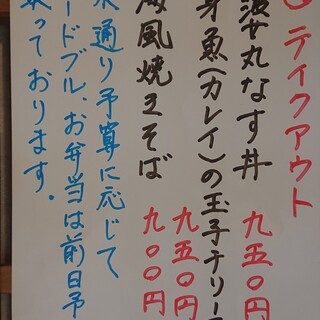 テイクアウト
婆丸なす丼 九五〇円
身魚(カレイ)の玉子チリソ 九五〇円
海風焼きそば 九〇〇円
通り予算に応じて
ードブル、お弁当は前日予
っております。